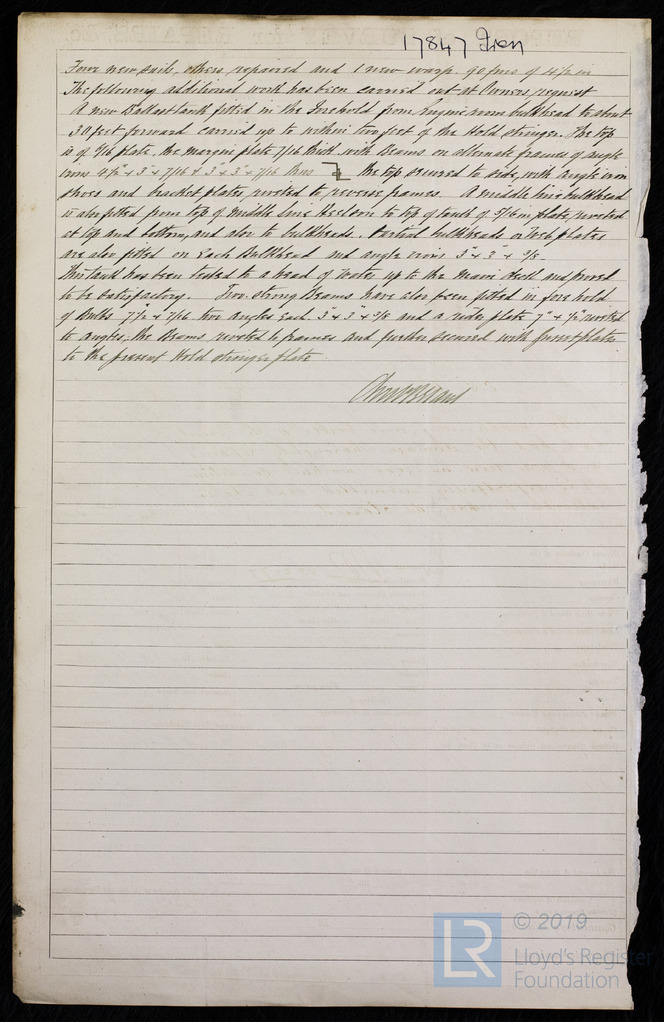 17847 Iron
Four new sails, others repaired and 1 new warp. 90 fms of 4½ in
The following additional work has been carried out at Owners request
A new Ballast tank fitted in the Forehold from Engine room bulkhead to about
30 feet forward carried up to within two feet of the Hold stringer. The top
is of 5/16 plate, the margin plate 7/16 thick with Beams on alternate frames of angle
irons 4½ × 3 × 7/16 & 3 × 3 × 7/16 thus the top secured to side, with angle iron
shoes and bracket plates, riveted to reverse frames. A middle line bulkhead
is also fitted from top of middle line Keelson to top of tank of 5/16 in plate, riveted
at top and bottom, and also to bulkheads. Partial bulkheads or Wash plates
are also fitted on Each Bulkhead and angle irons 3 × 3 × 3/8.
This tank has been tested to a head of Water up to the Main Deck and proved
to be Satisfactory. Two strong Beams have also been fitted in fore hold
of Bulbs 7½ × 7/16 two angles Each 3 × 3 × 3/8 and a rider plate 7 × ½ riveted
to angles, the Beams riveted to frames and further secured with Gusset plates
to the present Hold stringer plate
© 2019
LR
Lloyd's Register
Foundation